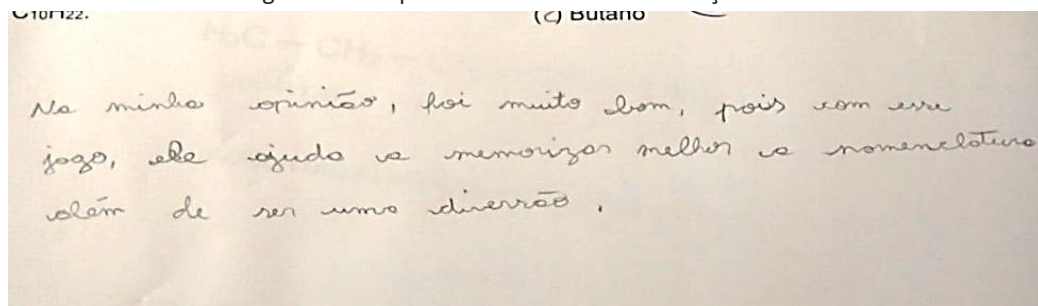 C10H22. (c) Butano
Na minha opinião, foi muito bom, pois com esse
jogo, ele ajuda a memorizar melhor a nomenclatura
além de ser uma diversão.